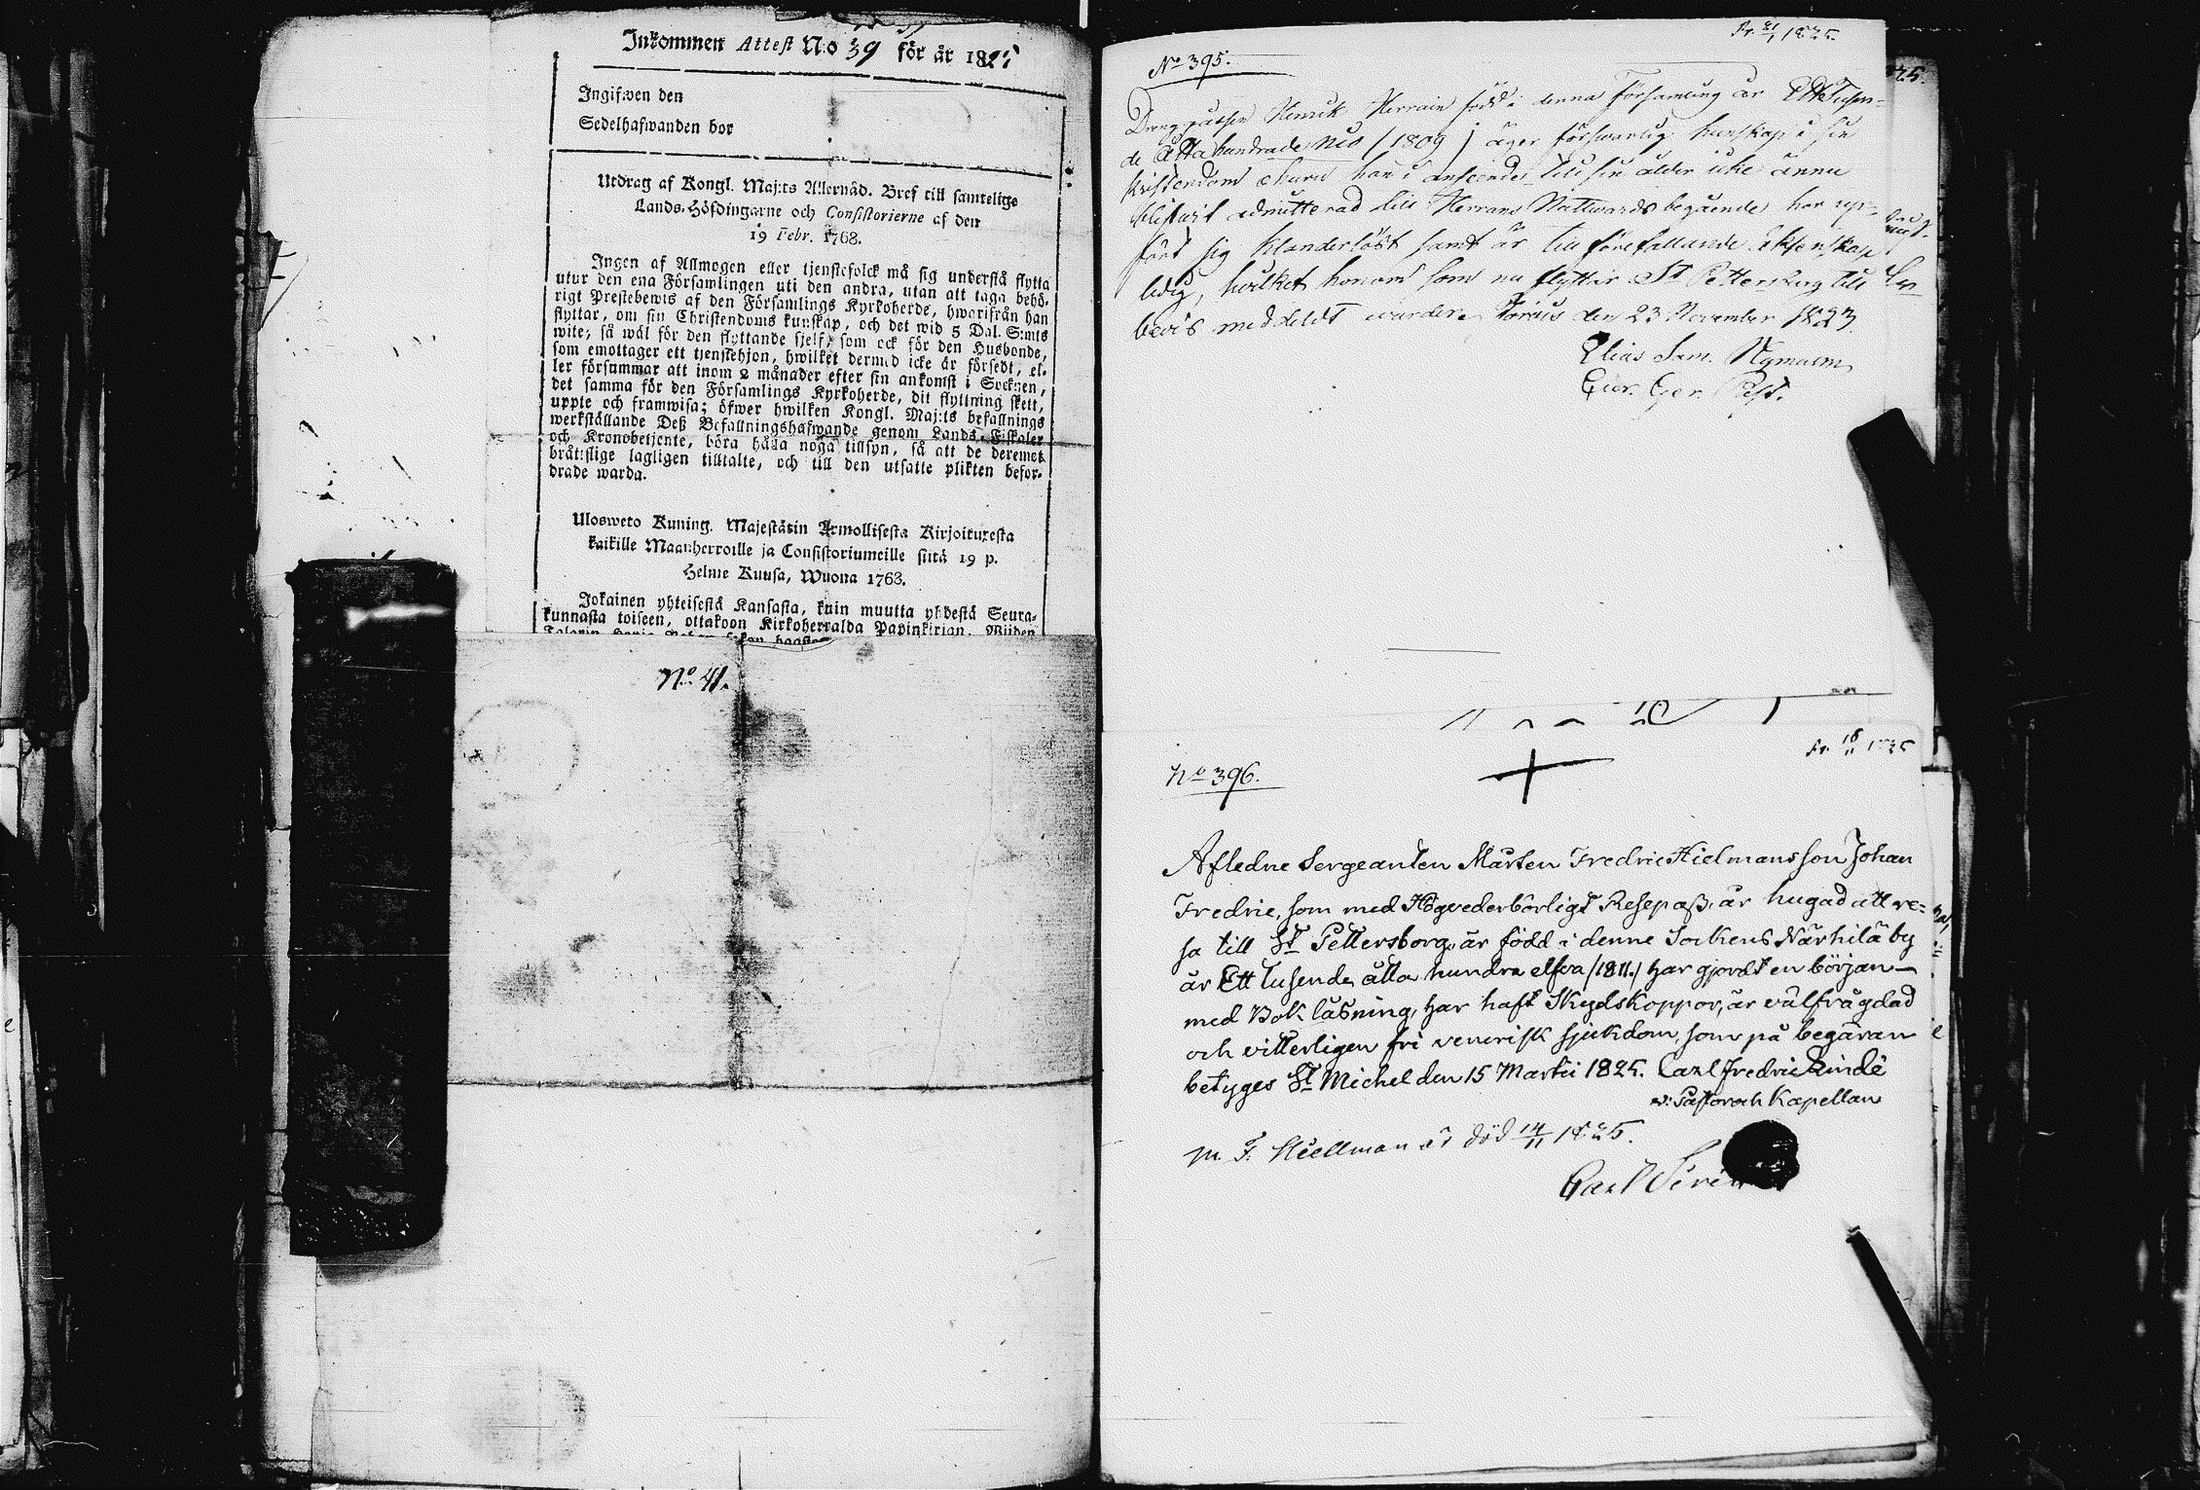 Inkommen Attest No 39 för år 1825
Ingifwen den
Sedelhafwanden bor
Utdrag af Kongl. Maj:ts Allernåd. Bref till samtelige
Lands-Höfdingarne och Consistorierne af den
19 Febr. 1768.
Ingen af Allmogen eller tjenstefolck må sig understå flytta
utur den ena Församlingen uti den andra, utan att taga behö-
rigt Prestebewis af den Församlings Kyrkoherde, hwarifrån han
flyttar, om sin Christendoms kunskap, och det wid 5 Dal. S:mts
wite, så wäl för den flyttande sjelf, som ock för den Husbonde,
som emottager ett tjenstehjon, hwilket dermed icke är försedt, el-
ler försummar att inom 2 månader efter sin ankomst i Socknen,
det samma för den Församlings Kyrkoherde, dit flyttning skett,
uppte och framwisa; öfwer hwilken Kongl. Maj:ts befallnings
werkställande Deß Befallningshafwande genom Lands-Fiskaler
och Kronobetjente, böra hålla noga tillsyn, så att de deremot
bråttslige lagligen tilltalte, och till den utsatte plikten befor-
drade warda.
Ulosweto Kuning. Majestätin Armollisesta Kirjoituxesta
kaikille Maanherroille ja Consistoriumeille siitä 19 p.
Helme Kuusa, Wuona 1768.
Jokainen yhteisestä Kansasta, kuin muutta yhdestä Seura-
kunnasta toiseen, ottakoon Kirkoherralda Papinkirjan. Wiiden
No 41.
1825.
No 395.
Drenggåssen Henrik Herrain född i denna Församling år Ett Tusen-
de Åtta hundrade Nio /1809/ äger försvarlig kunskap i sin
Kristendom churu han i anseende till sin ålder icke ännu
blifvit admitterad till Herrans Nattvards begående har upp-
fört sig klanderlöst samt är till förefallande Ektenskap
ledig, hvilket honom som nu flyttar St Pettersburg till
bevis meddeldt warder. den 23 November 1823.
Elias Sam.
1825
No 396.
Afledne Sergeanten Mårten Fredric Hielmans son Johan
Fredric, som med Högvederbörligt Resepaß, är hugad att re-
sa till St Pettersborg, är född i denne Sockens Närhilä by
år Ett tusende åtta hundra elfva /1811./ har gjordt en början
med Bok läsning, har haft Skydskoppor, är välfrägdad
och vitterligen fri venerisk sjukdom, som på begäran
betyges St Michel den 15 Martii 1825. Carl Fredric Lindé
v: Pastor och Kapellan
M. F. Hiellman är död 14/11 1825.
Carl